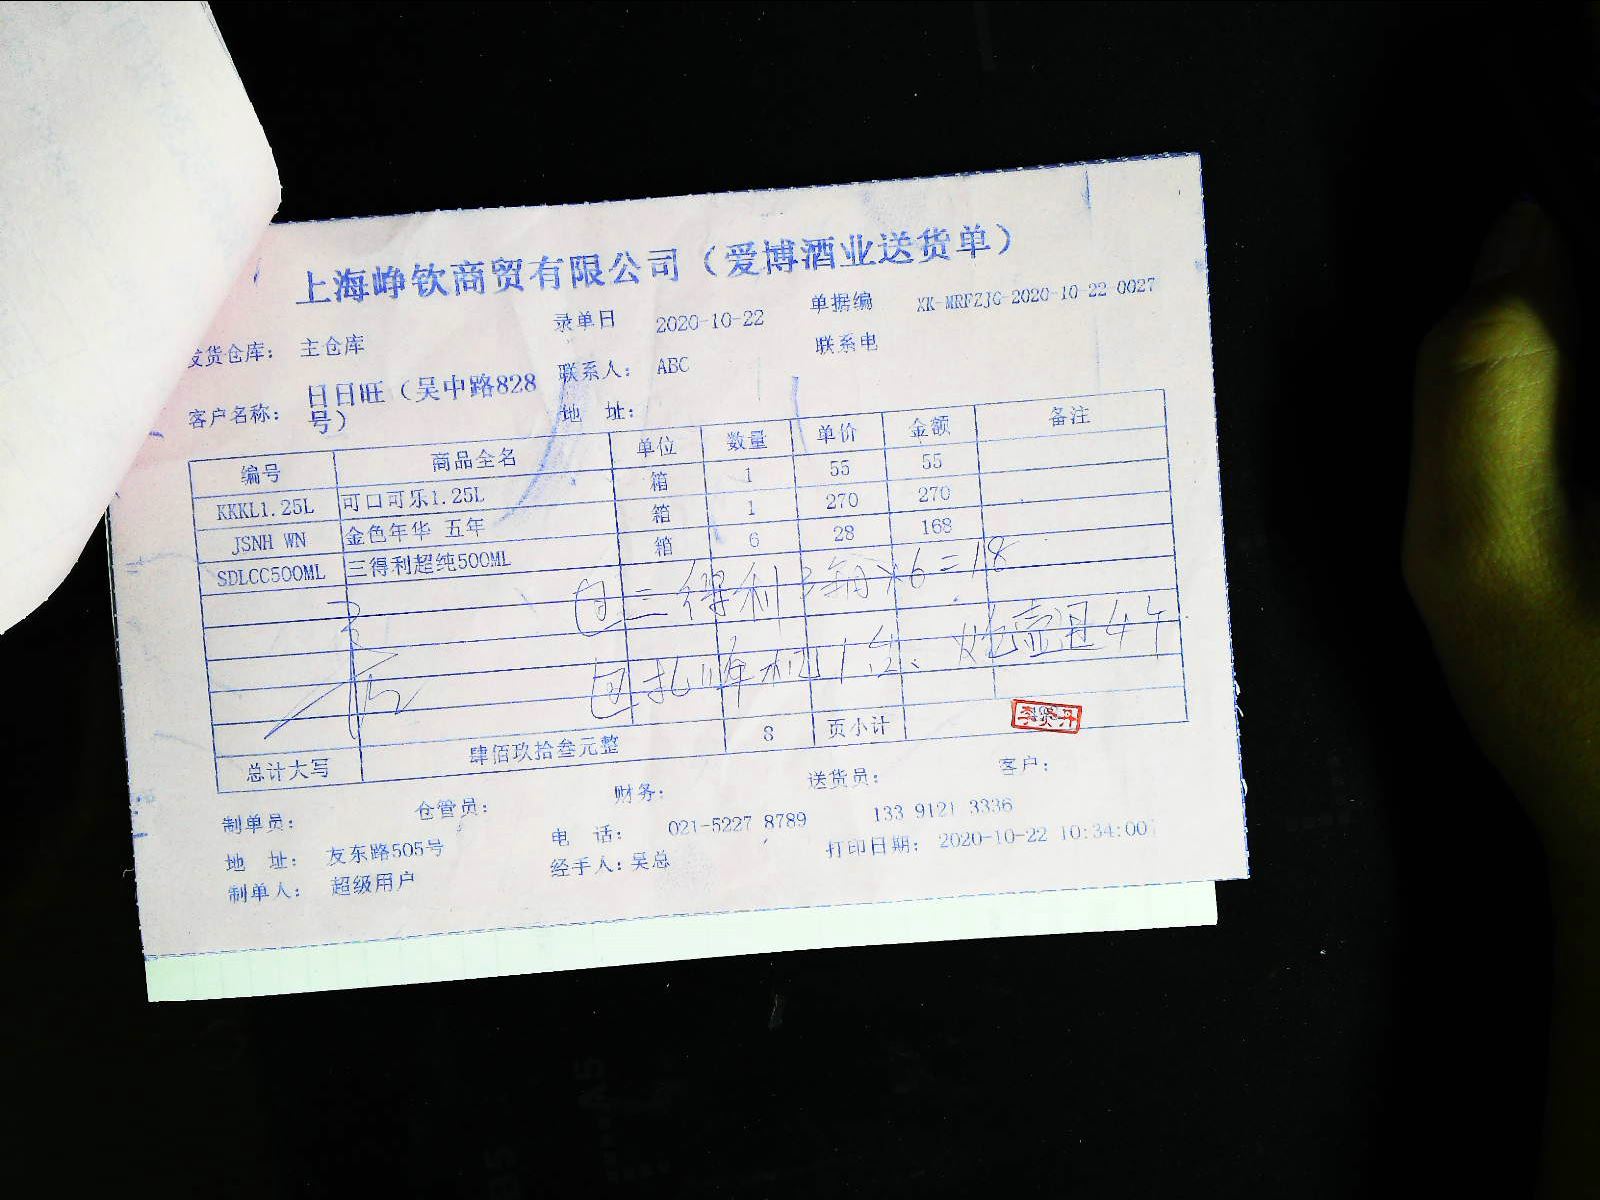 上海峥钦商贸有限公司（爱博酒业送货单）
发货仓库： 主仓库 录单日 2020-10-22 单据编 XK-MRFZJG-2020-10-22-0027
客户名称： 日日旺（吴中路828号） 联系人： ABC 联系电
地 址：
编号 商品全名 单位 数量 单价 金额 备注
KKKL1.25L 可口可乐1.25L 箱 1 55 55
JSNH WN 金色年华 五年 箱 1 270 270
SDLCC500ML 三得利超纯500ML 箱 6 28 168
三得利 3 ×6=18
总计大写 肆佰玖拾叁元整 8 页小计
制单员： 仓管员： 财务： 送货员： 客户：
地 址： 友东路505号 电 话： 021-5227 8789 133 9121 3336
制单人： 超级用户 经手人：吴总 打印日期： 2020-10-22 10:34:00